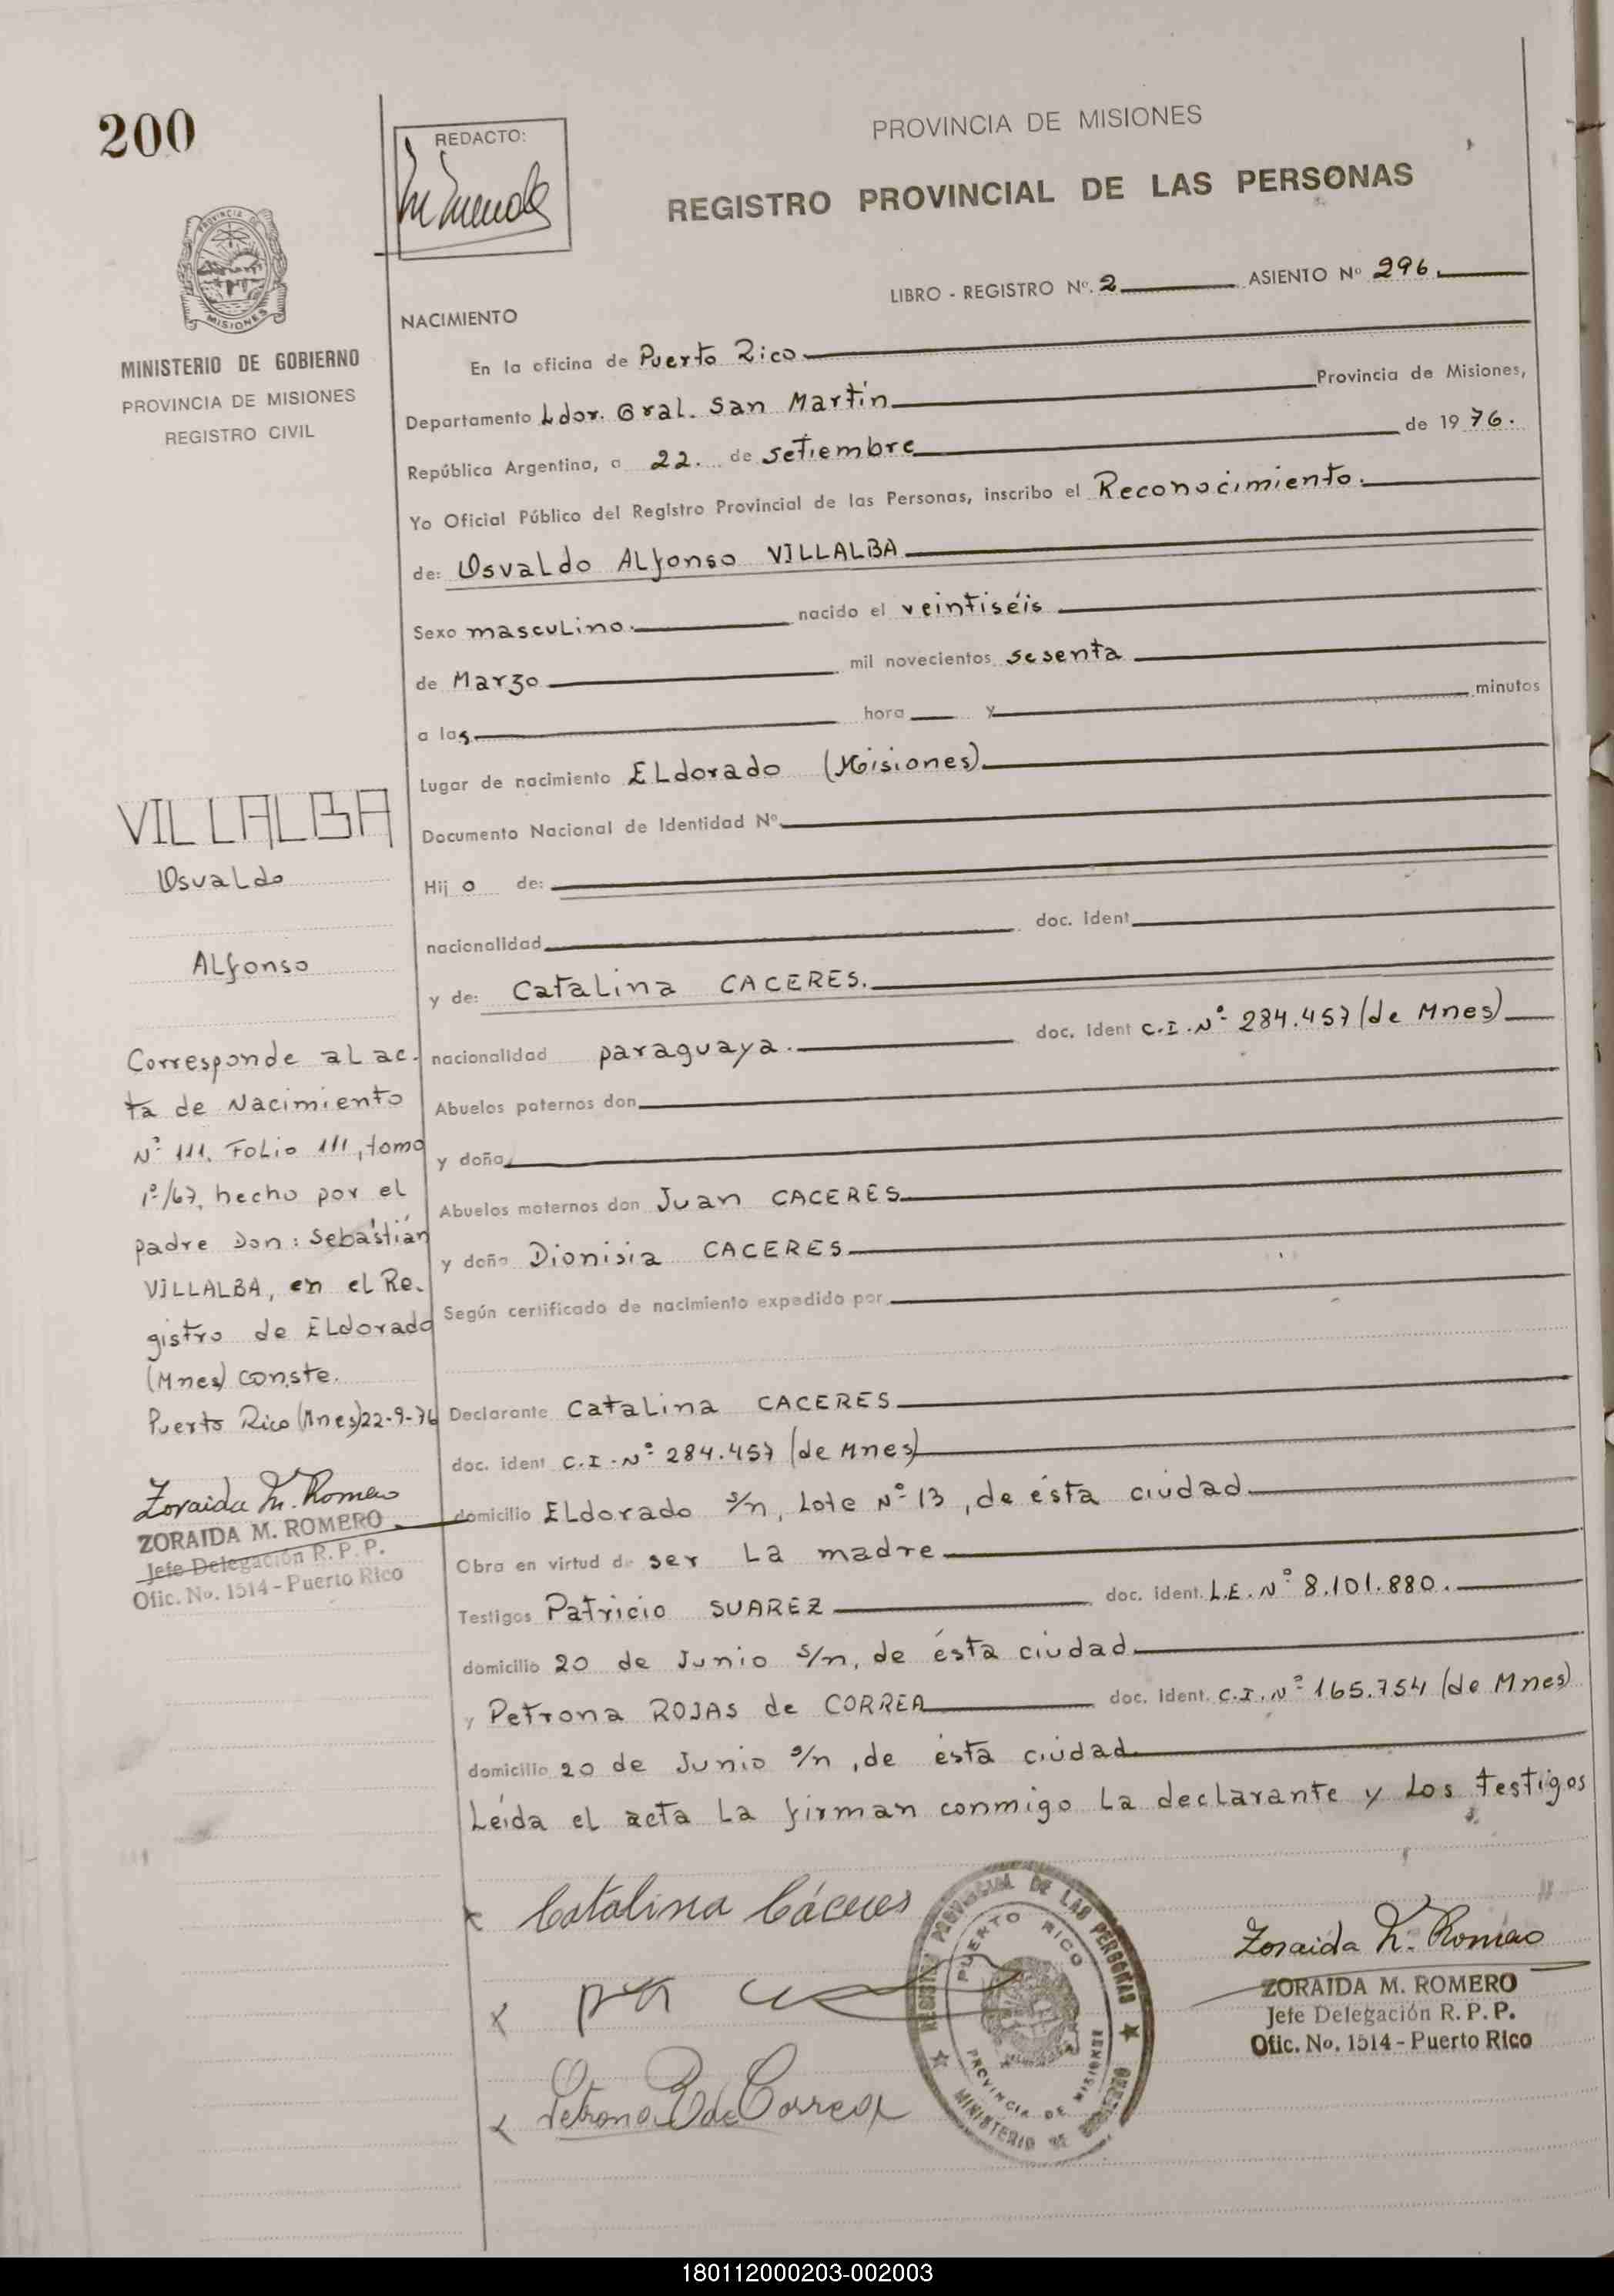 200
REDACTO:
PROVINCIA DE MISIONES
REGISTRO PROVINCIAL DE LAS PERSONAS
PROVINCIA DE
MISIONES
MINISTERIO DE GOBIERNO
PROVINCIA DE MISIONES
REGISTRO CIVIL
LIBRO - REGISTRO Nº. 2 ASIENTO Nº 296.
NACIMIENTO
En la oficina de Puerto Rico
Departamento Ldor. Gral. San Martín Provincia de Misiones,
República Argentina, a 22. de Setiembre de 1976.
Yo Oficial Público del Registro Provincial de las Personas, inscribo el Reconocimiento.
de: Osvaldo Alfonso VILLALBA
Sexo masculino. nacido el veintiséis
de Marzo mil novecientos sesenta
a las hora y minutos
Lugar de nacimiento Eldorado (Misiones)
Documento Nacional de Identidad Nº
Hijo de:
nacionalidad doc. ident
y de: Catalina CACERES.
nacionalidad paraguaya. doc. ident C.I. Nº 284.457 (de Mnes)
Abuelos paternos don
y doña
Abuelos maternos don Juan CACERES
y doña Dionisia CACERES
Según certificado de nacimiento expedido por
Declarante Catalina CACERES
doc. ident C.I. Nº 284.457 (de Mnes)
domicilio Eldorado s/n, Lote Nº 13, de ésta ciudad
Obra en virtud de ser La madre
Testigos Patricio SUAREZ doc. ident. L.E. Nº 8.101.880.
domicilio 20 de Junio s/n, de ésta ciudad
y Petrona ROJAS de CORREA doc. ident. C.I. Nº 165.754 (de Mnes)
domicilio 20 de Junio s/n, de ésta ciudad
Leída el acta la firman conmigo la declarante y los testigos
VILLALBA
Osvaldo
Alfonso
Corresponde al ac-
ta de Nacimiento
Nº 111. Folio 111, tomo
1º/67, hecho por el
padre Don: Sebastián
VILLALBA, en el Re-
gistro de Eldorado
(Mnes) conste.
Puerto Rico (Mnes) 22-9-76
Zoraida M. Romero
ZORAIDA M. ROMERO
Jefe Delegación R. P. P.
Ofic. No. 1514 - Puerto Rico
x Catalina Cáceres
x
x Petrona R de Correa
REGISTRO PROVINCIAL DE LAS PERSONAS
PUERTO RICO
PROVINCIA DE MISIONES
MINISTERIO DE GOBIERNO
Zoraida M. Romero
ZORAIDA M. ROMERO
Jefe Delegación R. P. P.
Ofic. No. 1514 - Puerto Rico
180112000203-002003